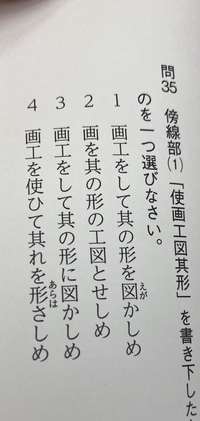 問35 傍線部⑴「使画工図其形」を書き下した
のを一つ選びなさい。
1 画工をして其の形を図かしめ
えが
2 画を其の形の工図とせしめ
3 画工をして其の形に図かしめ
4 画工を使ひて其れを形さしめ
あらは